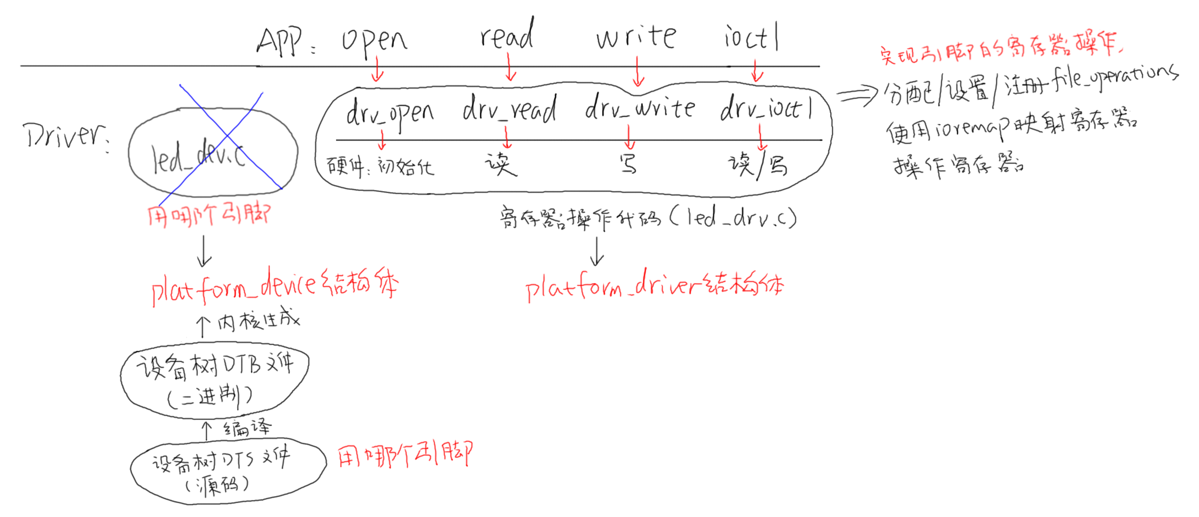 APP: open read write ioctl
实现引脚的寄存器操作.
分配/设置/注册file_operations
使用ioremap映射寄存器
操作寄存器
Driver:
led_dev.c
drv_open drv_read drv_write drv_ioctl
硬件: 初始化 读 写 读/写
用哪个引脚
寄存器操作代码(led_drv.c)
platform_device结构体
platform_driver结构体
内核生成
设备树DTB文件
(二进制)
编译
设备树DTS文件
(源码)
用哪个引脚